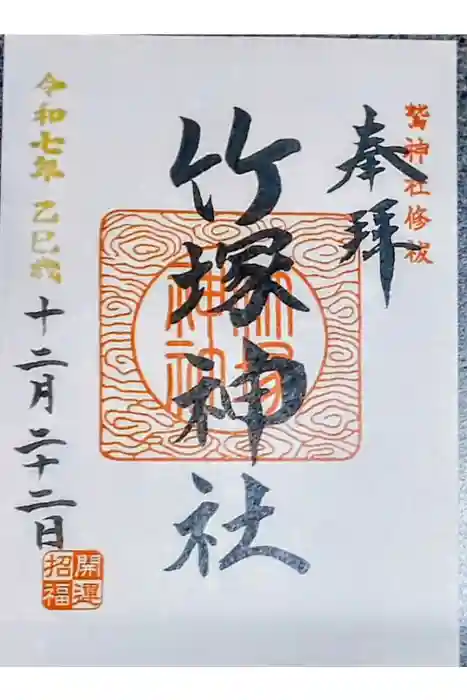 鷲神社修祓
奉拝
竹塚神社
竹塚
神社
令和七年乙巳歳
十二月二十二日
開運
招福